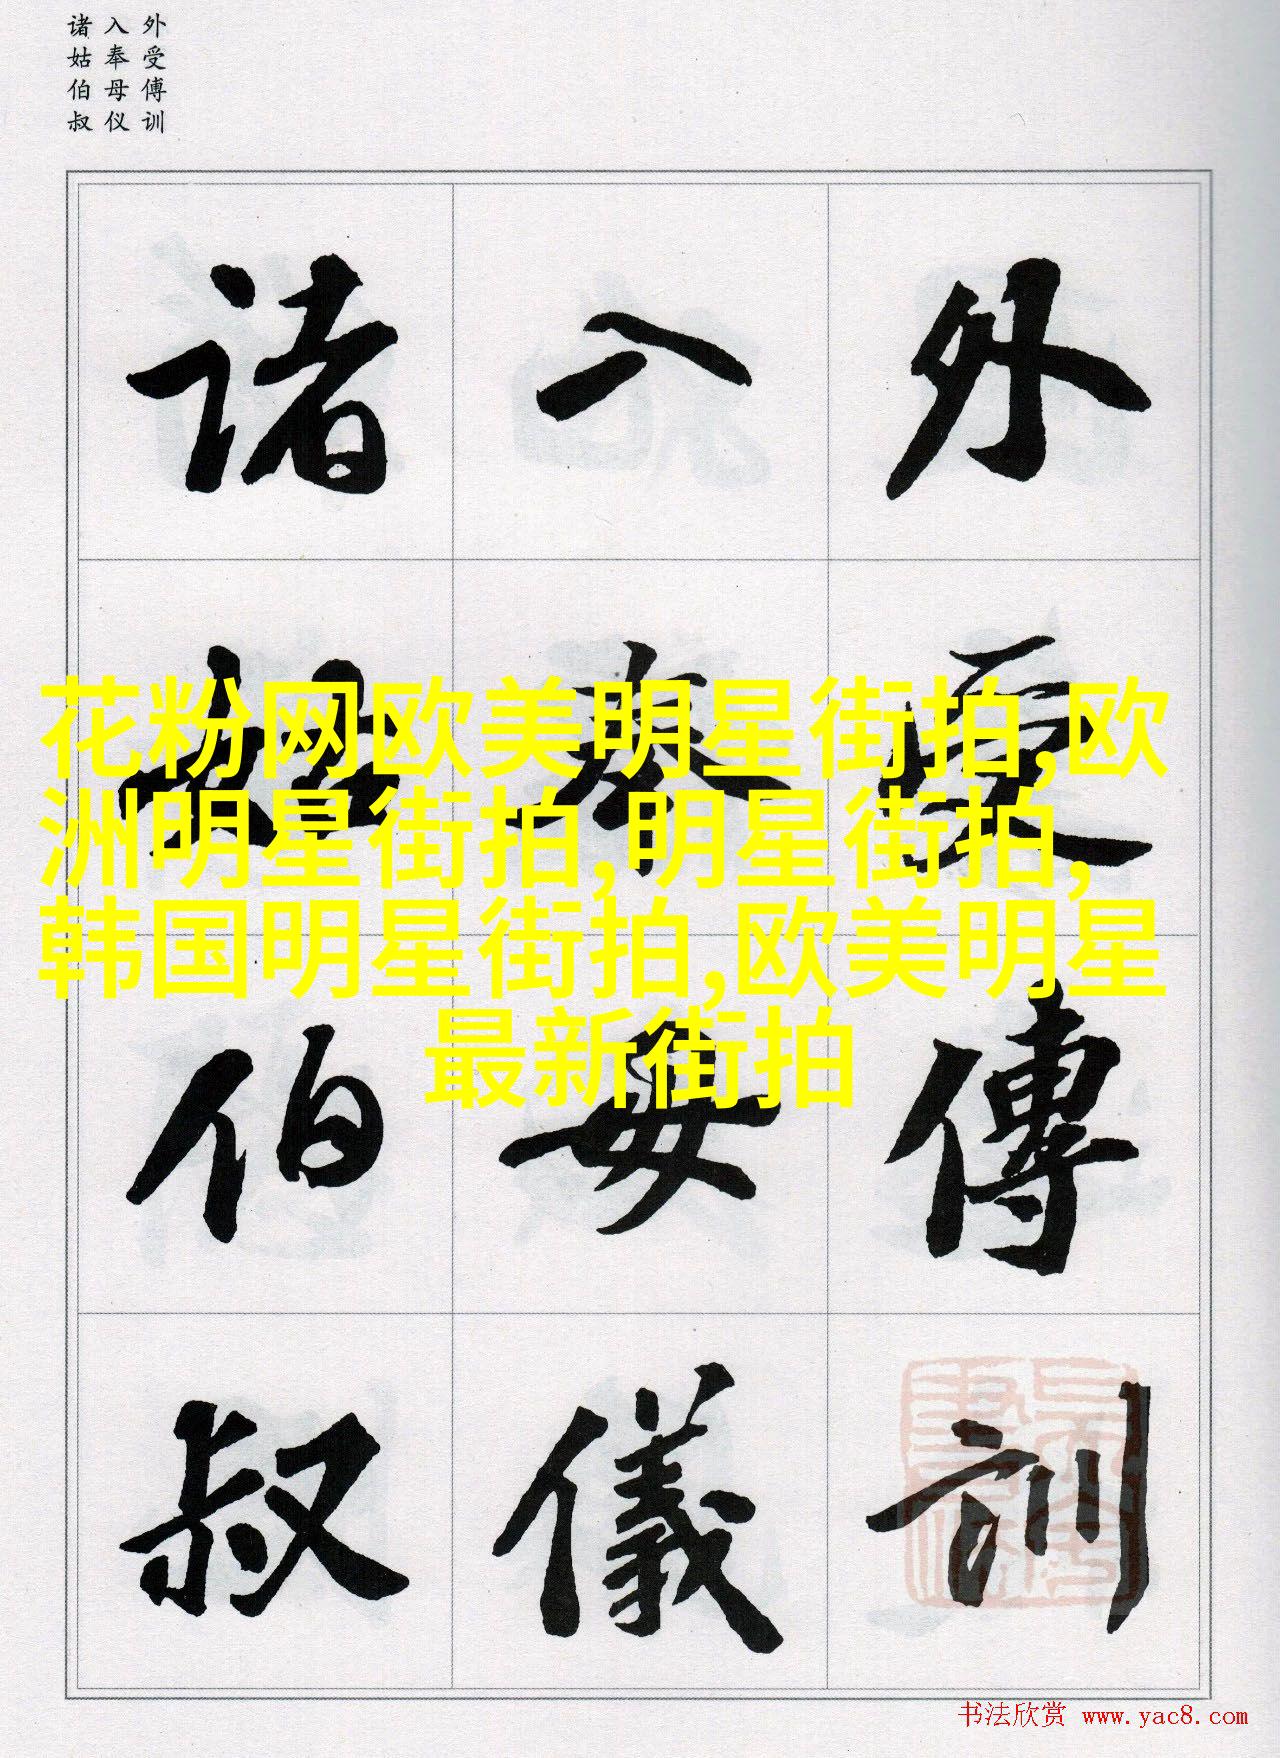 外受傅训
入奉母仪
诸姑伯叔
外受傅訓
入奉母儀
诸姑伯叔
花粉网欧美明星街拍,欧
洲明星街拍,明星街拍,
韩国明星街拍,欧美明星
最新街拍
书法欣赏 www.yac8.com